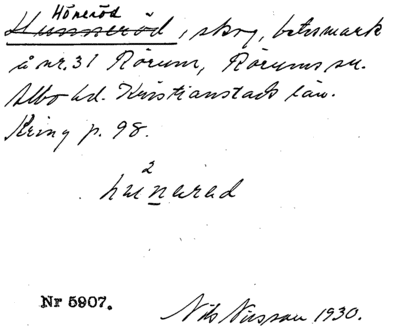 Höneröd
Hunneröd, skog, betesmark
å nr. 31 Rörum, Rörums sn.
Albo hd. Kristianstads län.
Kring p. 98.
2
hunarad
Nr 5907.
Nils Nilsson 1930.